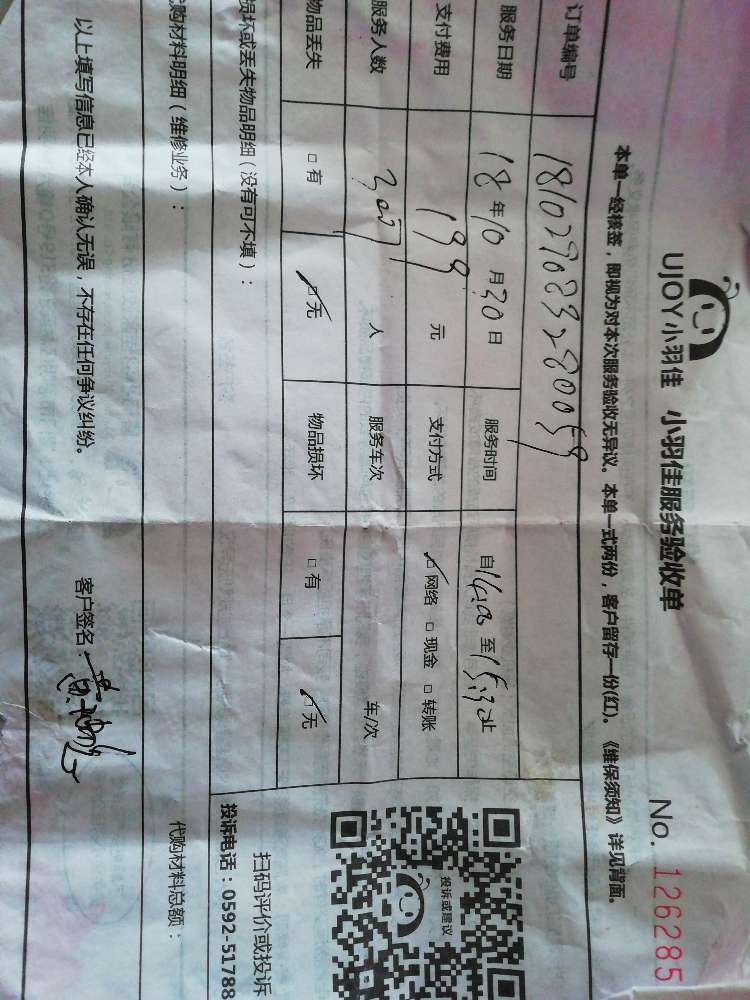 UJOY小羽佳 小羽佳服务验收单 No. 126285
本单一经核签，即视为对本次服务验收无异议。本单一式两份，客户留存一份(红)。《维保须知》详见背面。
订单编号
服务日期 18年10月30日 服务时间 自 至 止
支付费用 199元 支付方式 网络 □现金 □转账
服务人数 人 服务车次 车/次
物品丢失 □有 □无 物品损坏 □有 □无
损坏或丢失物品明细（没有可不填）：
代购材料明细（维修业务）： 代购材料总额：
以上填写信息已经本人确认无误，不存在任何争议纠纷。 客户签名：
投诉或建议
扫码评价或投诉
投诉电话：0592-51788